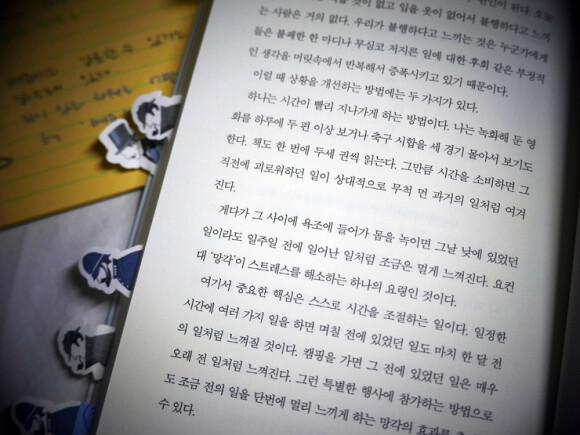 는 사람은 거의 없다. 우리가 불행하다고 느끼는 것은 누군가에게
들은 불쾌한 한 마디나 무심코 저지른 일에 대한 후회 같은 부정적
인 생각을 머릿속에서 반복해서 증폭시키고 있기 때문이다.
이럴 때 상황을 개선하는 방법에는 두 가지가 있다.
하나는 시간이 빨리 지나가게 하는 방법이다. 나는 녹화해 둔 영
화를 하루에 두 편 이상 보거나 축구 시합을 세 경기 몰아서 보기도
한다. 책도 한 번에 두세 권씩 읽는다. 그만큼 시간을 소비하면 그
직전에 괴로워하던 일이 상대적으로 무척 먼 과거의 일처럼 여겨
진다.
게다가 그 사이에 욕조에 들어가 몸을 녹이면 그날 낮에 있었던
일이라도 일주일 전에 일어난 일처럼 조금은 멀게 느껴진다. 요컨
대 '망각'이 스트레스를 해소하는 하나의 요령인 것이다.
여기서 중요한 핵심은 스스로 시간을 조절하는 일이다. 일정한
시간에 여러 가지 일을 하면 며칠 전에 있었던 일도 마치 한 달 전
의 일처럼 느껴질 것이다. 캠핑을 가면 그 전에 있었던 일은 매우
오래 전 일처럼 느껴진다. 그런 특별한 행사에 참가하는 방법으로
도 조금 전의 일을 단번에 멀리 느끼게 하는 망각의 효과를
수 있다.